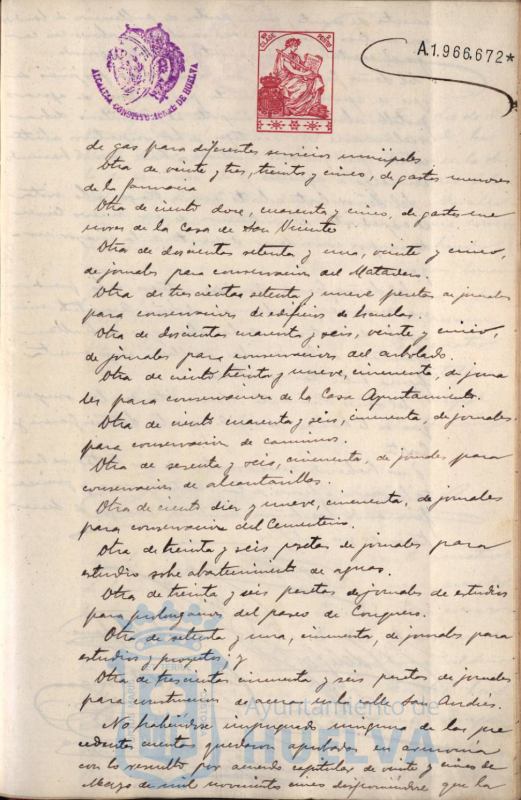 ALCALDIA CONSTITUCIONAL DE HUELVA
A.1.966.672*
de gas para diferentes servicios municipales
Otra de veinte y tres, treinta y cinco, de gastos menores
de la farmacia
Otra de ciento doce, cuarenta y cinco, de gastos me
nores de la Casa de San Vicente
Otra de doscientas setenta y una, veinte y cinco,
de jornales para conservacion del Matadero.
Otra de trescientas setenta y nueve pesetas de jornales
para conservacion de edificios de Escuelas.
Otra de doscientas cuarenta y seis, veinte y cinco,
de jornales para conservacion del arbolado.
Otra de ciento treinta y nueve, cincuenta, de jorna
les para conservacion de la Casa Ayuntamiento.
Otra de ciento cuarenta y seis, cincuenta, de jornales
para conservacion de caminos.
Otra de sesenta y seis, cincuenta, de jornales para
conservacion de alcantarillas.
Otra de ciento diez y nueve, cincuenta, de jornales
para conservacion del Cementerio.
Otra de treinta y seis pesetas de jornales para
estudio sobre abastecimiento de aguas.
Otra de treinta y seis pesetas de jornales de estudios
para prolongacion del paseo de
Otra de setenta y una, cincuenta, de jornales para
estudios y proyectos, y
Otra de trescientas cincuenta y seis pesetas de jornales
para construccion de en la calle San Andrés.
Ayuntamiento de
HUELVA
No habiendose impugnado ninguna de las pre
cedentes cuentas quedaron aprobadas en armonia
con lo resuelto por acuerdo capitular de veinte y cinco de
Mayo de mil novecientos cinco disponiendose que la